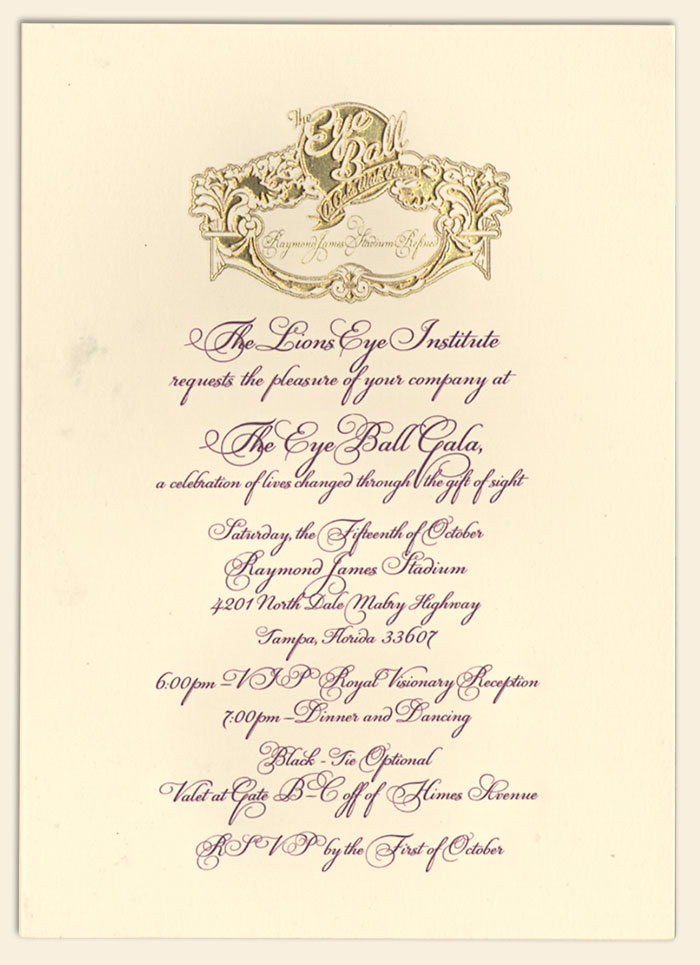 The
Eye
Ball
Raymond James Stadium Refined
The Lions Eye Institute
requests the pleasure of your company at
The Eye Ball Gala,
a celebration of lives changed through the gift of sight
Saturday, the Fifteenth of October
Raymond James Stadium
4201 North Dale Mabry Highway
Tampa, Florida 33607
6:00pm – VIP Royal Visionary Reception
7:00pm – Dinner and Dancing
Black - Tie Optional
Valet at Gate B – C off of Himes Avenue
RSVP by the First of October